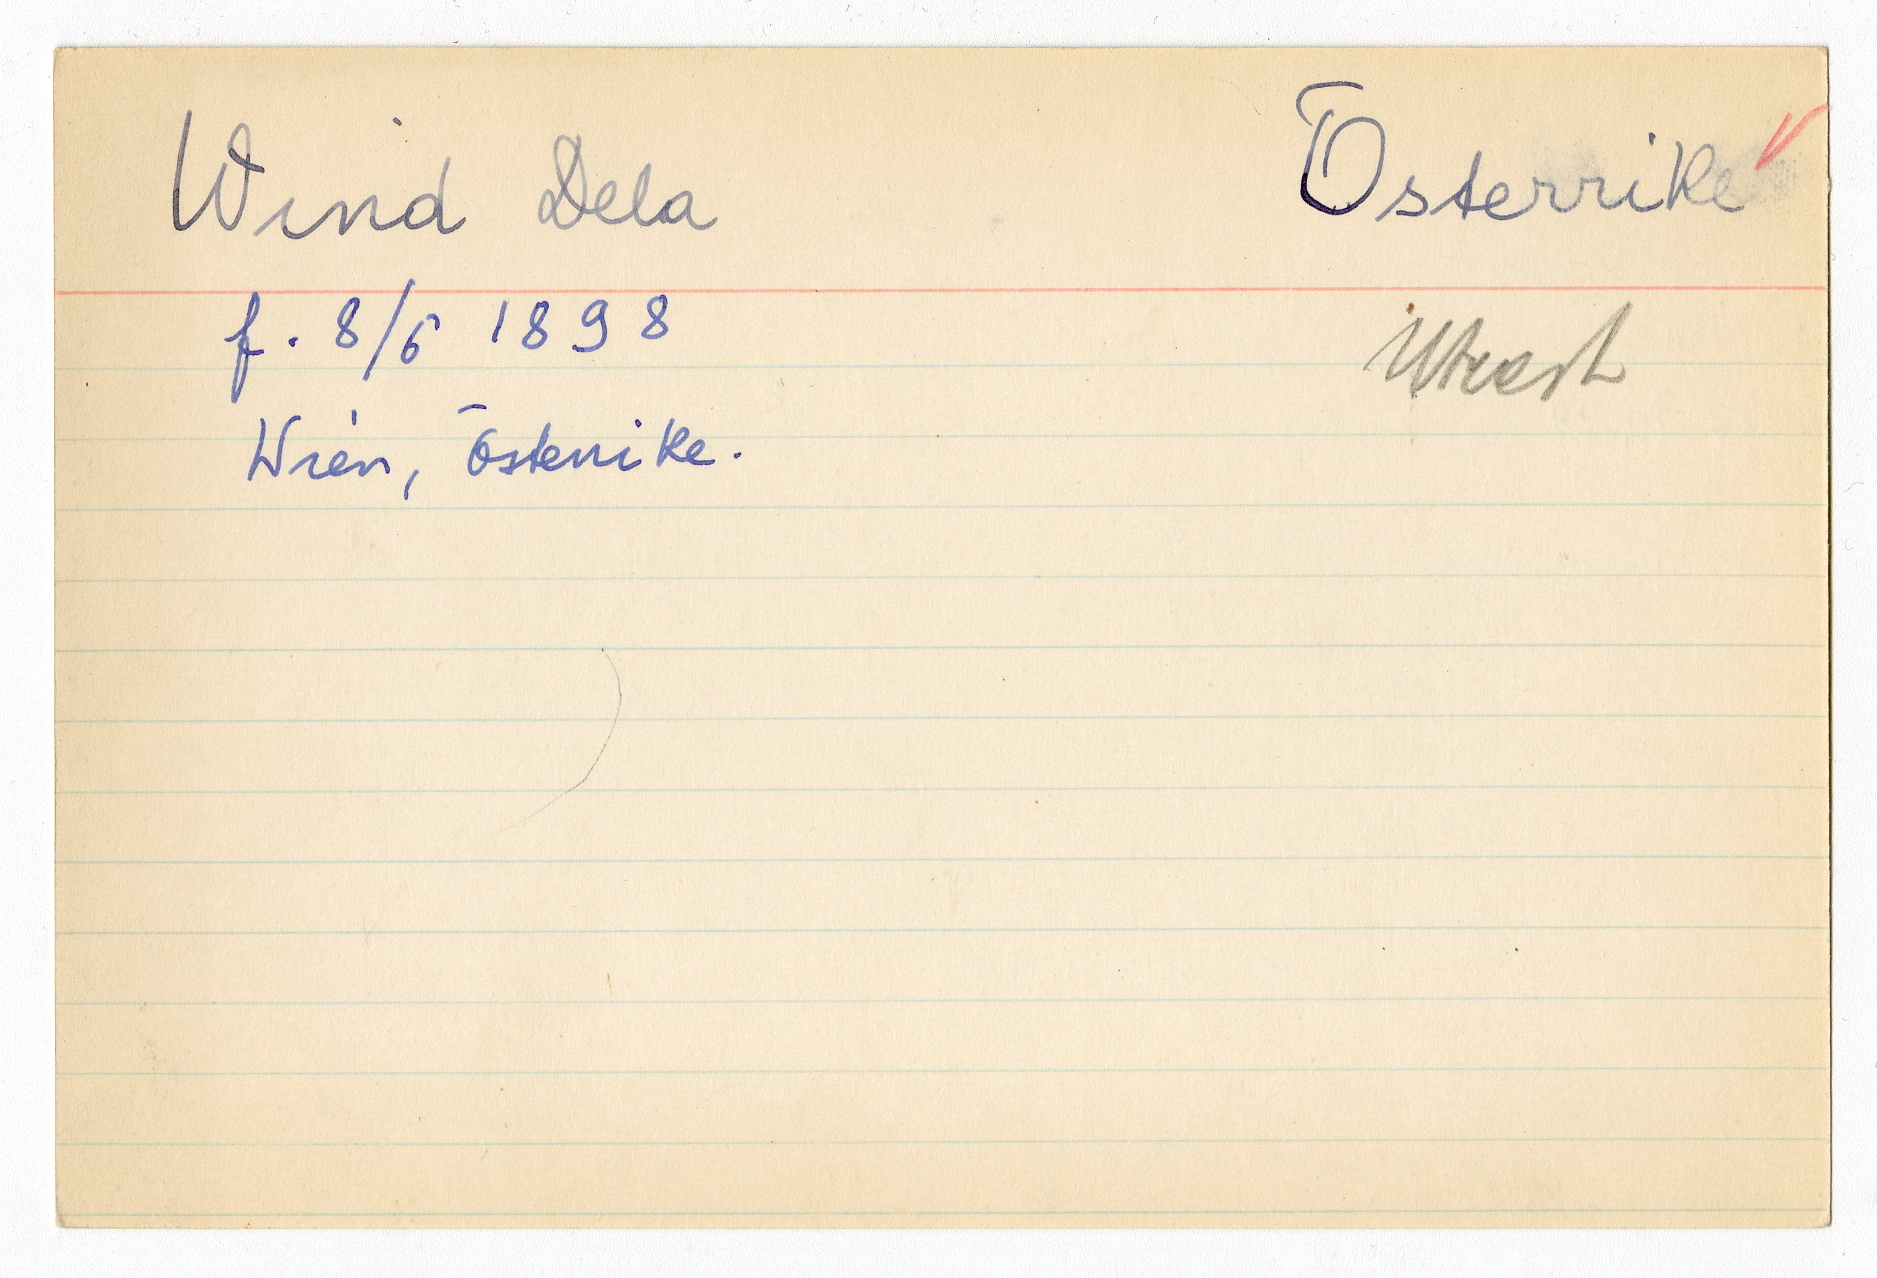 Wind Dela
Österrike
f. 8/6 1898
Wien, Österrike.